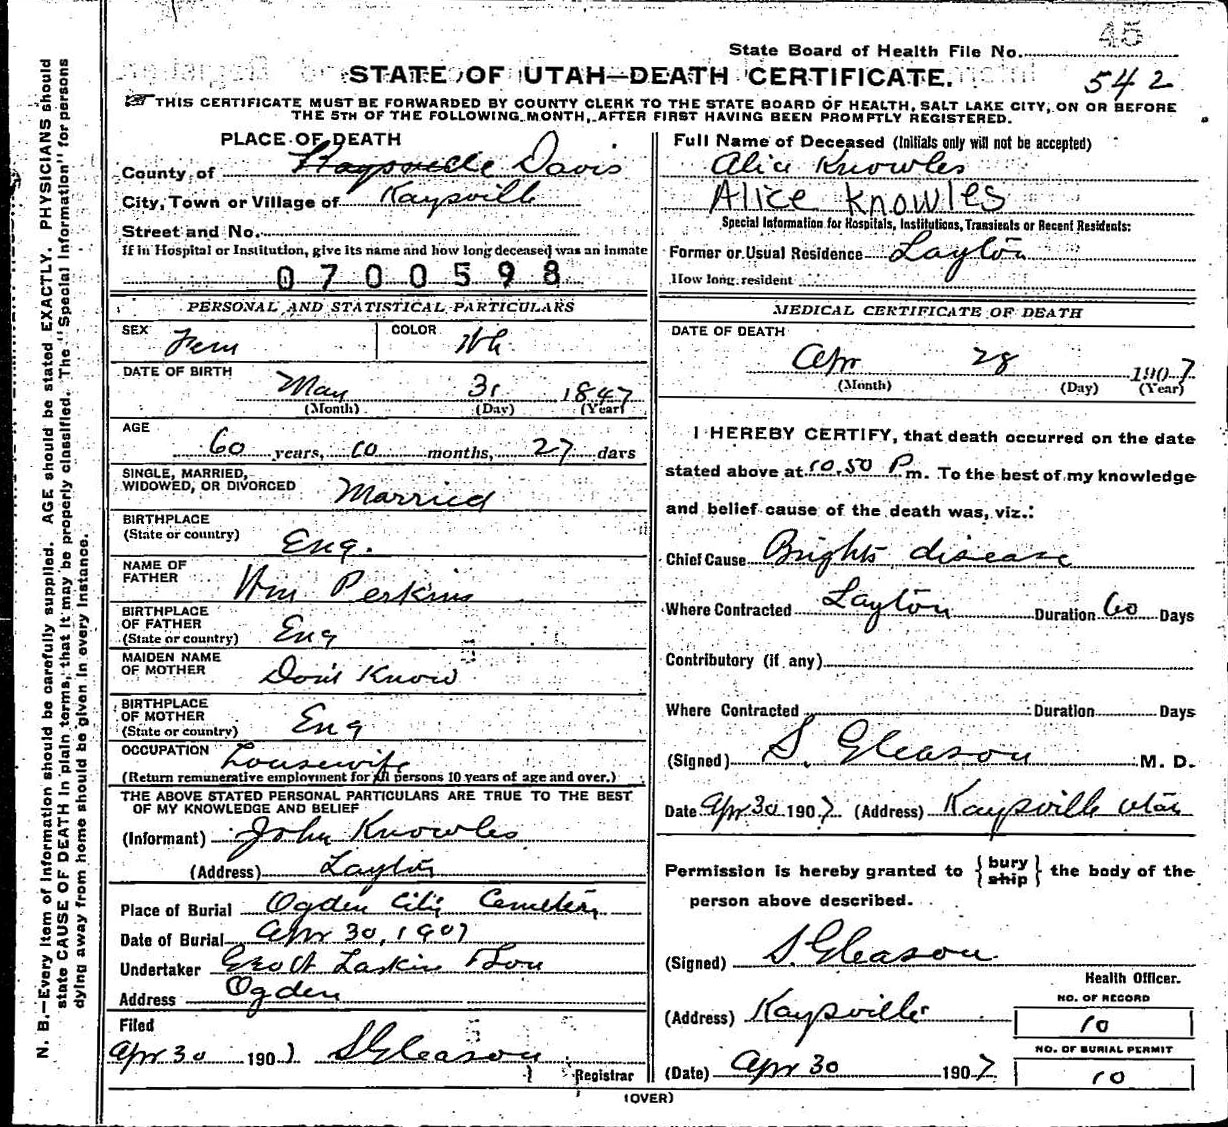 45
State Board of Health File No.
STATE OF UTAH—DEATH CERTIFICATE.
542
THIS CERTIFICATE MUST BE FORWARDED BY COUNTY CLERK TO THE STATE BOARD OF HEALTH, SALT LAKE CITY, ON OR BEFORE
THE 5TH OF THE FOLLOWING MONTH, AFTER FIRST HAVING BEEN PROMPTLY REGISTERED.
PLACE OF DEATH
County of Kaysville Davis
City, Town or Village of Kaysville
Street and No.
If in Hospital or Institution, give its name and how long deceased was an inmate
0700598
PERSONAL AND STATISTICAL PARTICULARS
SEX Fem COLOR Wh
DATE OF BIRTH
May 31 1847
(Month) (Day) (Year)
AGE
60 years, 10 months, 27 days
SINGLE, MARRIED,
WIDOWED, OR DIVORCED Married
BIRTHPLACE
(State or country) Eng.
NAME OF
FATHER Wm Perkins
BIRTHPLACE
OF FATHER
(State or country) Eng
MAIDEN NAME
OF MOTHER Don't Know
BIRTHPLACE
OF MOTHER
(State or country) Eng
OCCUPATION Housewife
(Return remunerative employment for all persons 10 years of age and over.)
THE ABOVE STATED PERSONAL PARTICULARS ARE TRUE TO THE BEST
OF MY KNOWLEDGE AND BELIEF
(Informant) John Knowles
(Address) Layton
Place of Burial Ogden City Cemetery
Date of Burial Apr 30, 1907
Undertaker Geo W Larkin & Son
Address Ogden
Filed
Apr 30 1907 S Gleason
Registrar
Full Name of Deceased (Initials only will not be accepted)
Alice Knowles
Alice Knowles
Special Information for Hospitals, Institutions, Transients or Recent Residents:
Former or Usual Residence Layton
How long resident
MEDICAL CERTIFICATE OF DEATH
DATE OF DEATH
Apr 28 1907
(Month) (Day) (Year)
I HEREBY CERTIFY, that death occurred on the date
stated above at 10.50 P m. To the best of my knowledge
and belief cause of the death was, viz.:
Chief Cause Brights disease
Where Contracted Layton Duration 60 Days
Contributory (if any)
Where Contracted Duration Days
(Signed) S. Gleason M. D.
Date Apr 30 1907 (Address) Kaysville Utah
Permission is hereby granted to {bury ship} the body of the
person above described.
(Signed) S. Gleason
Health Officer.
(Address) Kaysville
NO. OF RECORD
10
NO. OF BURIAL PERMIT
10
(Date) Apr 30 1907
(OVER)
N. B.—Every item of information should be carefully supplied. AGE should be stated EXACTLY. PHYSICIANS should
state CAUSE OF DEATH in plain terms, that it may be properly classified. The "Special Information" for persons
dying away from home should be given in every instance.